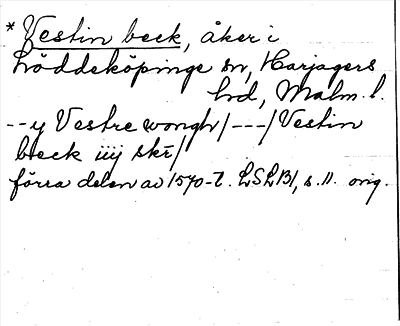 * Vestin beck, åker i
Löddeköpinge sn, Harjagers
hd, Malm. l.
--y Vestre wongh/---/Vestin
beck iiij skr/
förra delen av 1570-t. LSLB1, s. 11. orig.